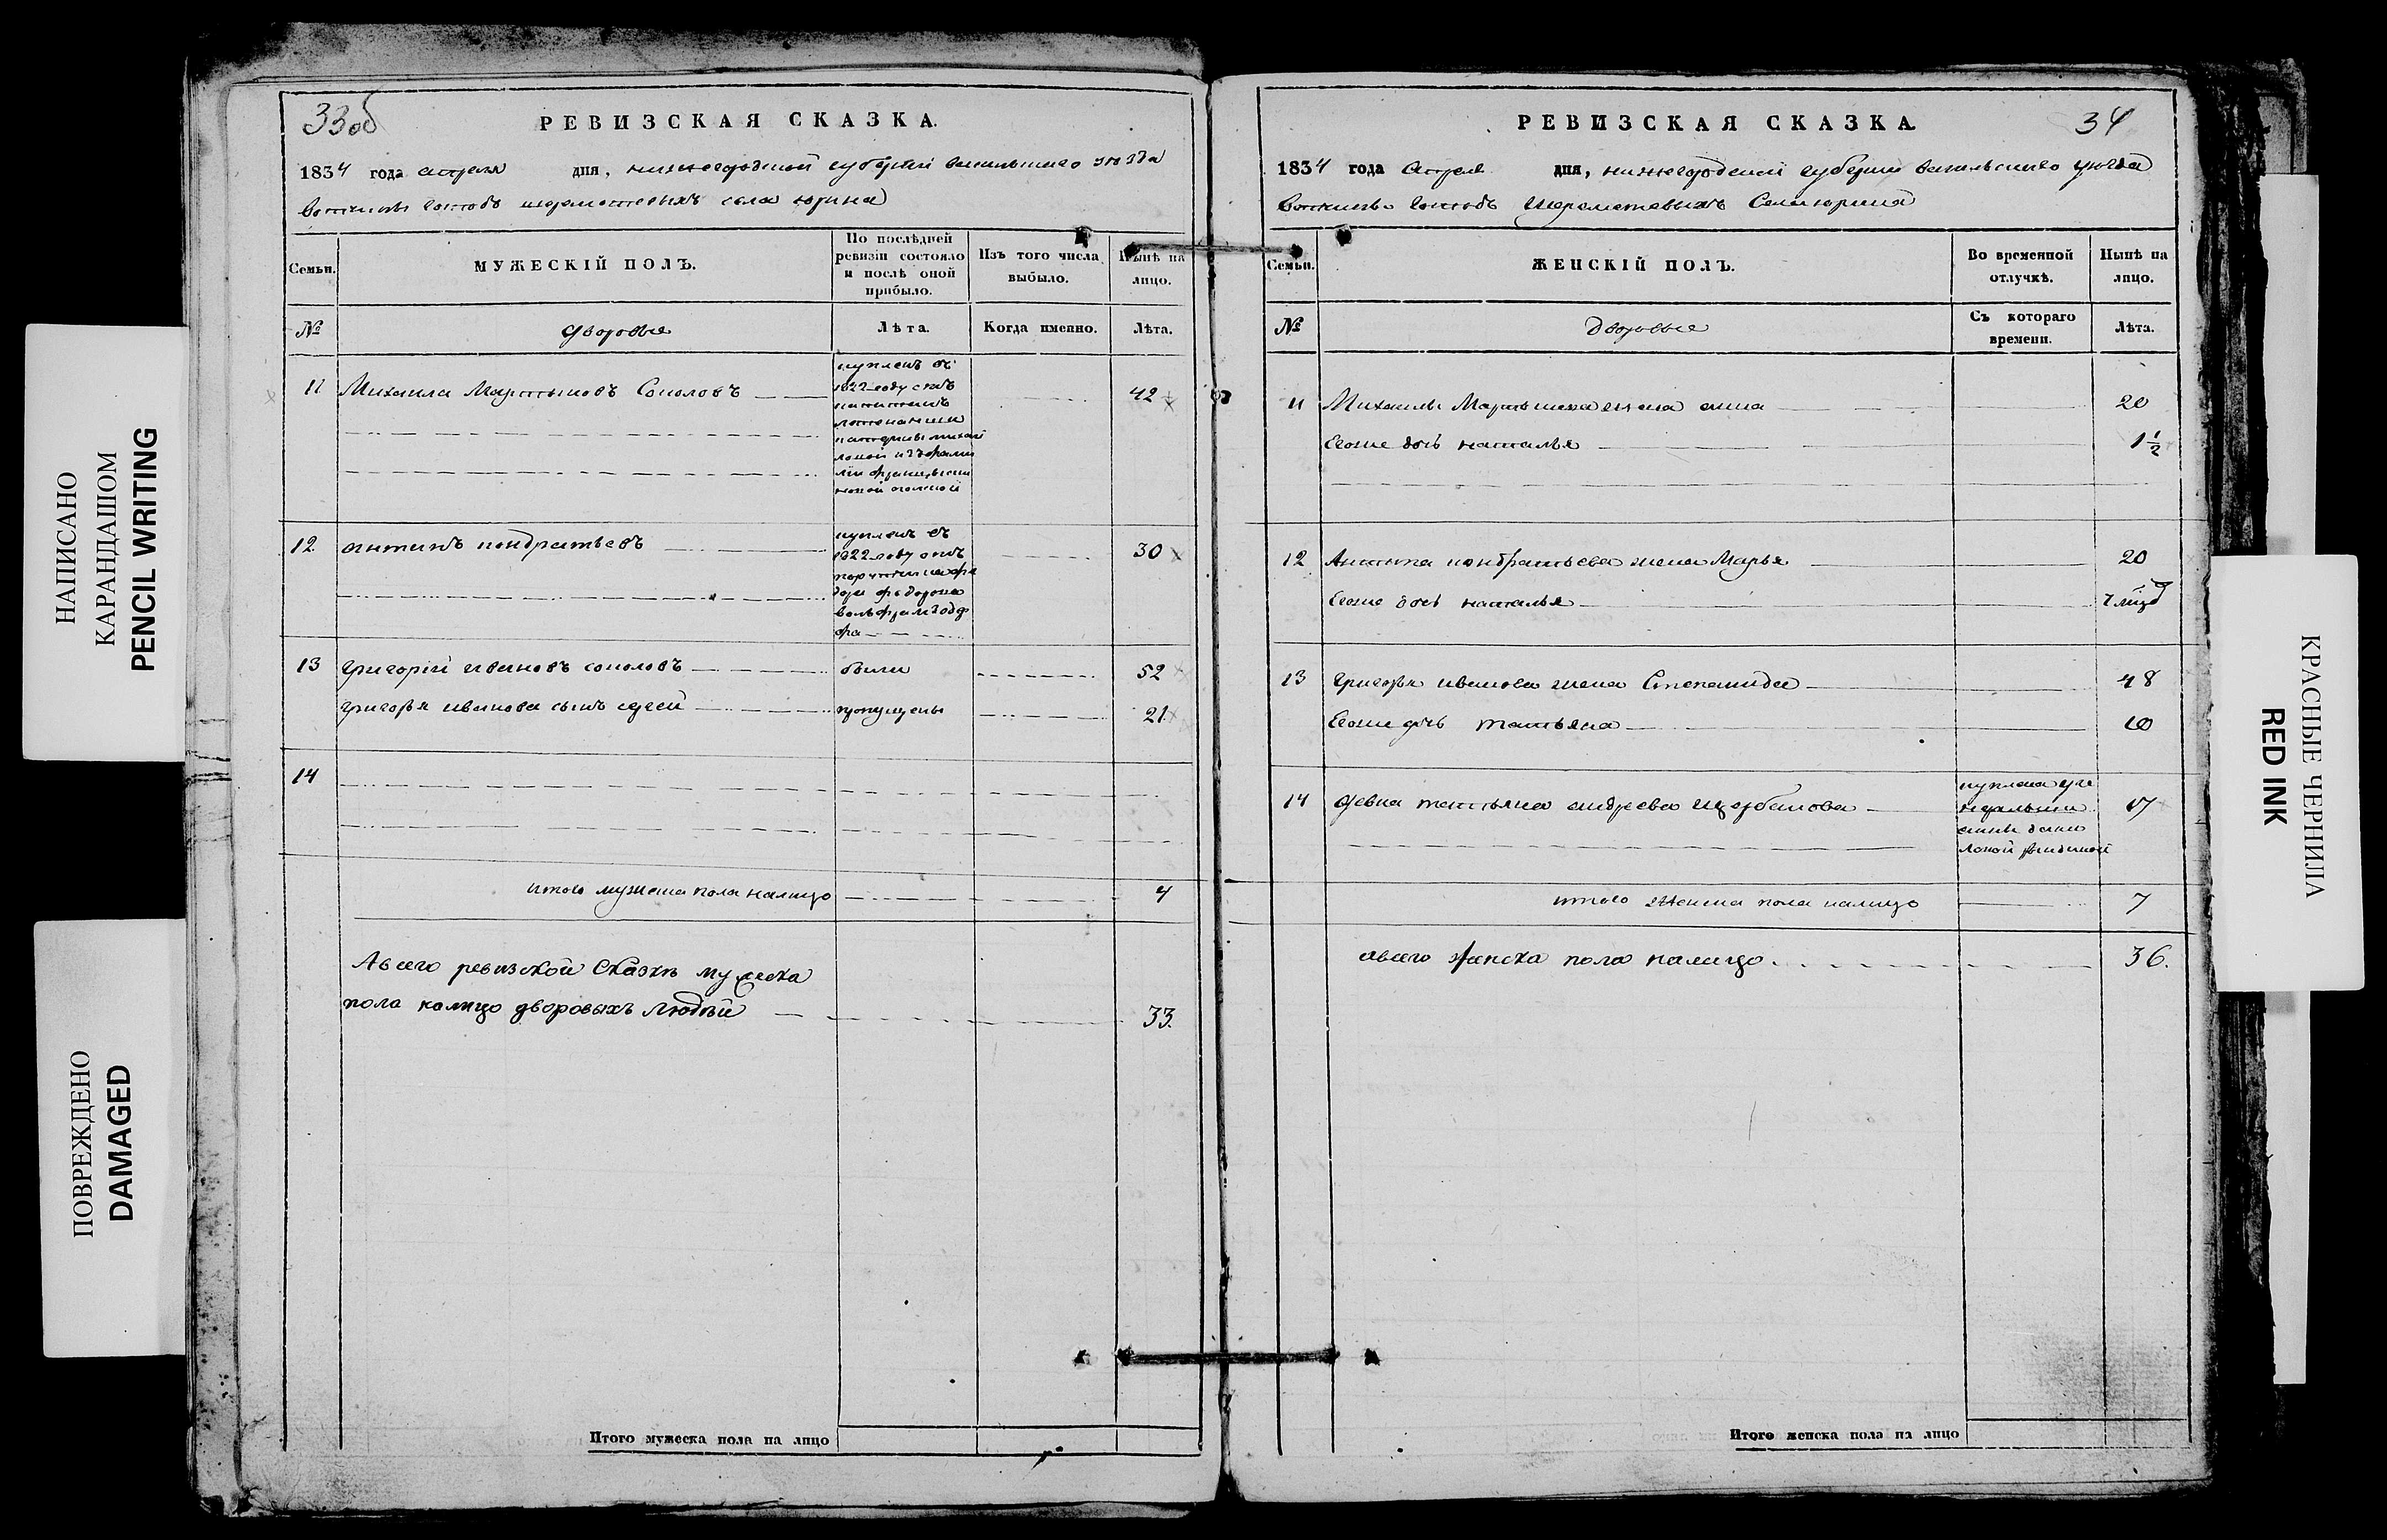 НАПИСАНО
КАРАНДАШОМ
PENCIL WRITING
ПОВРЕЖДЕНО
DAMAGED
33об
РЕВИЗСКАЯ СКАЗКА.
1834 года апреля дня, нижегородской губерніи васильскаго уѣзда
вотчины господъ шереметевыхъ села юрина
Семьи.
МУЖЕСКІЙ ПОЛЪ.
По послѣдней
ревизіи состояло
и послѣ оной
прибыло.
Изъ того числа
выбыло.
Нынѣ на
лицо.
№
дворовые
Лѣта.
Когда именно.
Лѣта.
11
Михаила Мартыновъ Соколовъ
42
купленъ въ
1822 году отъ
12
антипъ кондратьевъ
30
купленъ въ
1822 году отъ
13
григорій ивановъ соколовъ
были
52
григорья иванова сынъ
пропущены
21
14
итого мужеска пола налицо
4
Авсего ревизской Сказкѣ мужеска
пола налицо дворовыхъ людѣй
33.
Итого мужеска пола на лицо
34
РЕВИЗСКАЯ СКАЗКА
1834 года апреля дня, нижегородской губерніи васильскаго уѣзда
вотчины господъ шереметевыхъ Села юрина
Семьи.
ЖЕНСКІЙ ПОЛЪ.
Во временной
отлучкѣ.
Нынѣ на
лицо.
№
Дворовые
Съ котораго
времени.
Лѣта.
11
Михаилы Мартынова жена анна
20
Егоже дочь наталья
1 1/2
12
Антипа кондратьева жена Марья
20
Егоже дочь наталья
13
григорья иванова жена Степанида
48
Егоже дочь татьяна
10
14
девка татьяна андреева щербакова
17
куплена
итого женска пола налицо
7
авсего женска пола налицо
36.
Итого женска пола на лицо
КРАСНЫЕ ЧЕРНИЛА
RED INK